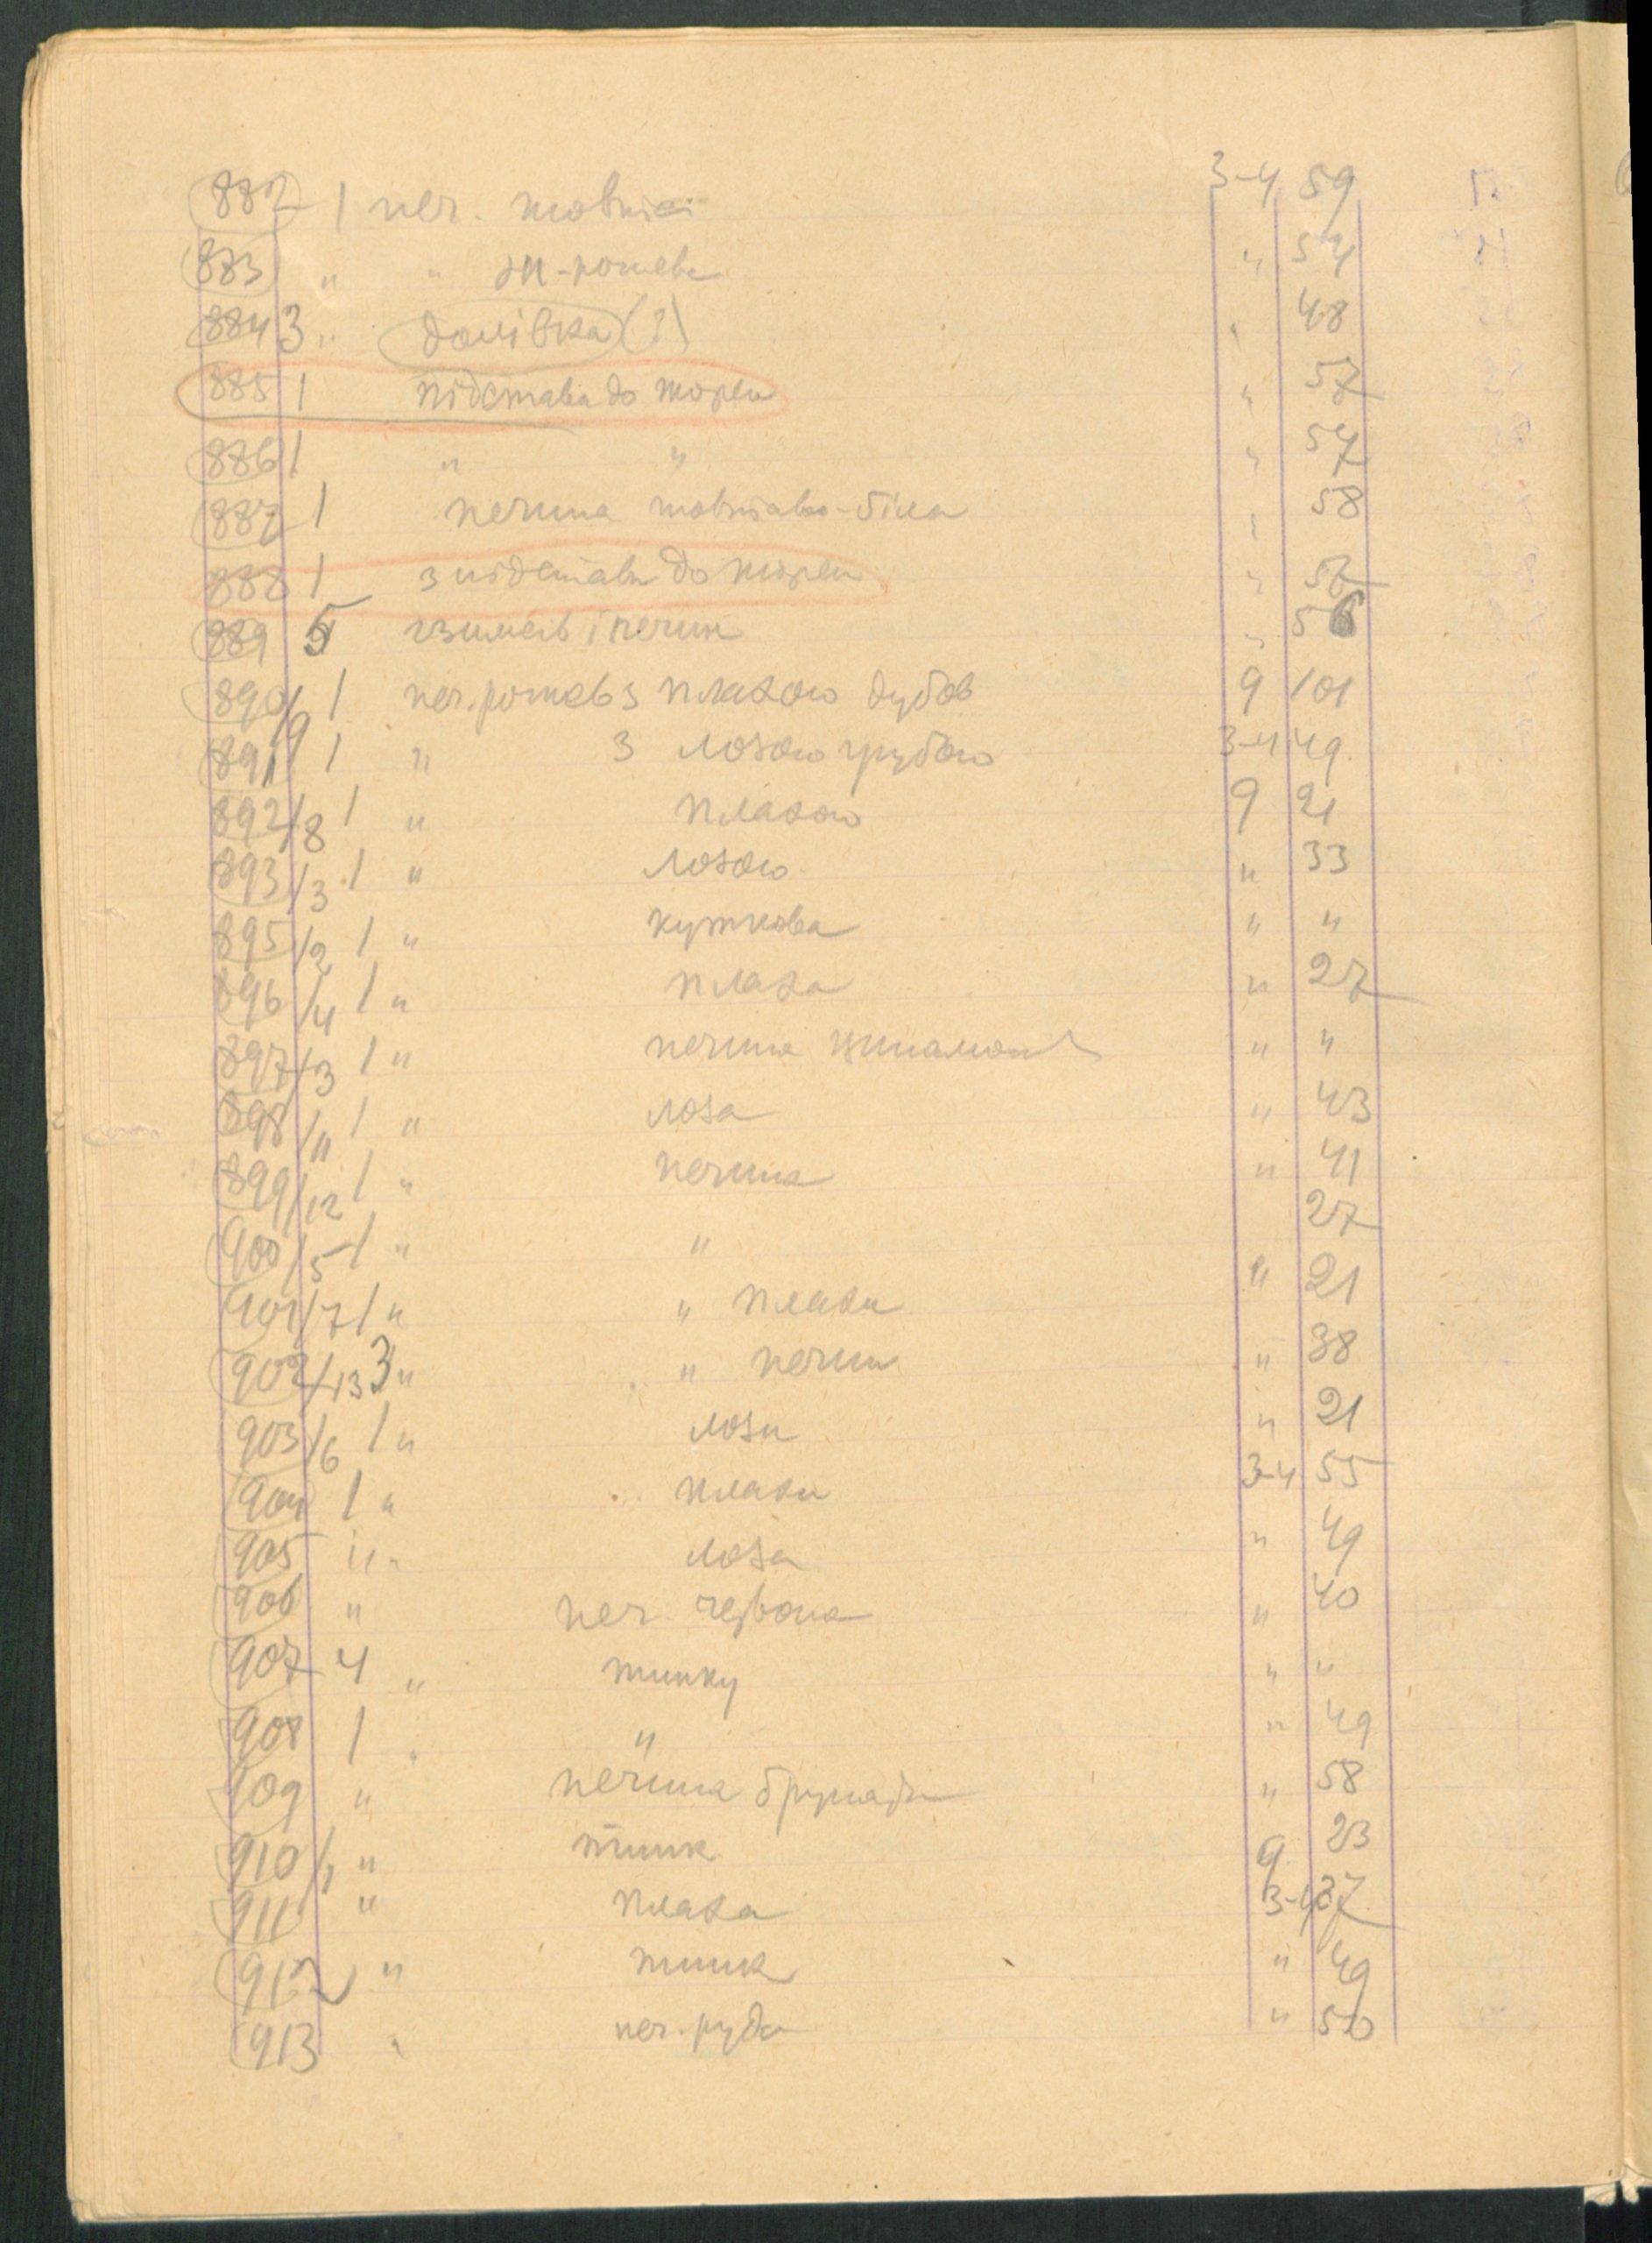 882 1 печ. жовта 3-4 59
883 " " яс-рожева " 54
884 3 " долівка (?) " 48
885 1 підстава до жорен " 57
886 1 " " " 57
887 1 печина жовтаво-біла " 58
888 1 з підстави до жорен " 57
889 5 печин " 56
890/ 1 печ. рожев з плахою дубов 9 101
891/9 1 " з лозою грубою 3-4 49
892/8 1 " плахою 9 21
893/3 1 " лозою " 33
895/2 1 " куткова " "
896/4 1 " плаха " 27
897/3 1 " печина " "
898/11 1 " лоза " 43
899/12 1 " печина " 41
900/5 1 " " 27
901/7 1 " " плахи " 21
902/13 3 " " печин " 38
903/6 1 " лози " 21
904 1 " плахи 3-4 55
905 " " лоза " 49
906 " печ. червона " 40
907 4 " тинку " "
908 1 " " " 49
909 " печина " 58
910/1 " тинк 9 23
911 " плаха 3-4 37
912 " тинк " 49
913 " печ. руда " 50